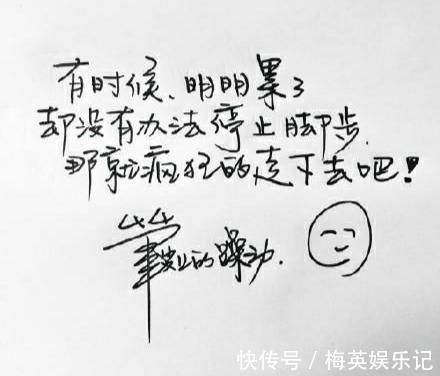 有时候、明明累了
却没有办法停止脚步.
那就疯狂的走下去吧!
毕业的躁动.
快传号/梅英娱乐记